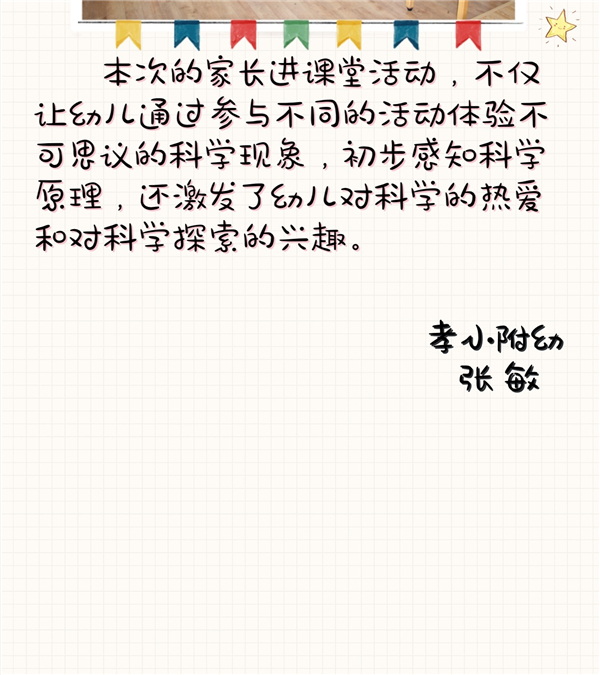 本次的家长进课堂活动，不仅
让幼儿通过参与不同的活动体验不
可思议的科学现象，初步感知科学
原理，还激发了幼儿对科学的热爱
和对科学探索的兴趣。
孝小附幼
张敏